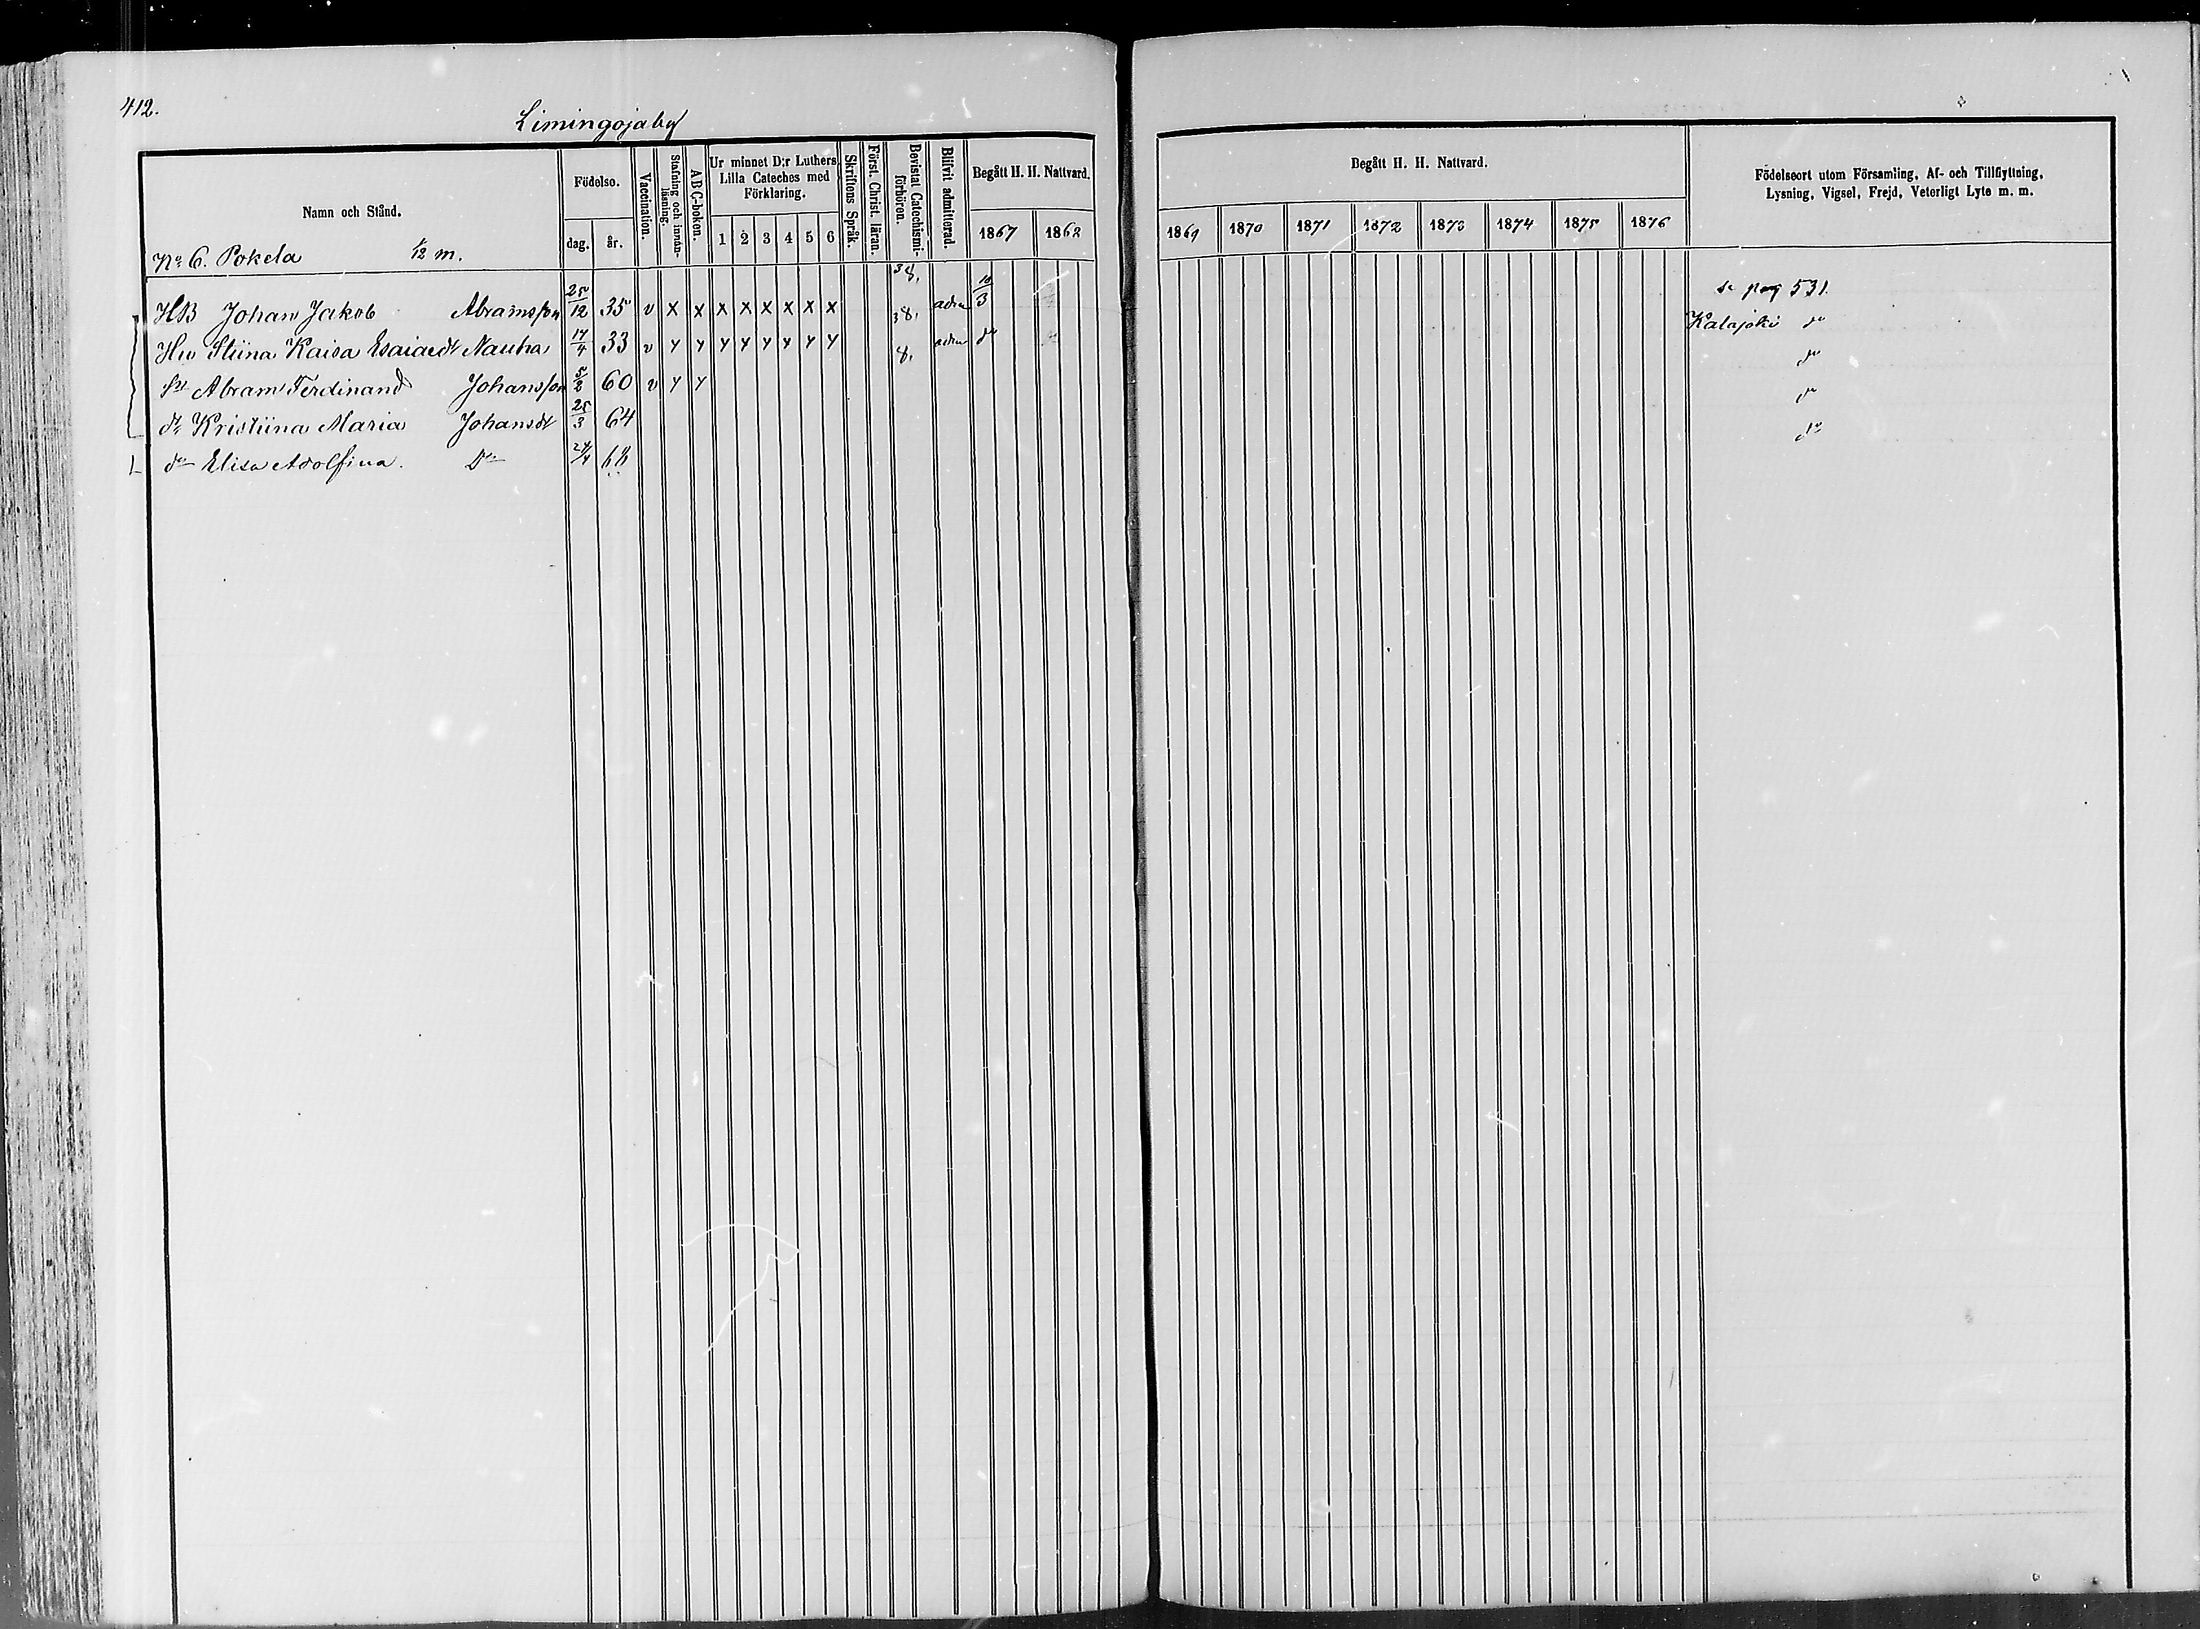 412.
Limingojaby
Namn och Stånd.
Födelse.
dag. år.
Vaccination.
Stafning och innanläsning.
ABC-boken.
Ur minnet D:r Luthers Lilla Cateches med Förklaring.
1 2 3 4 5 6
Skriftens Språk.
Först. Christ. läran.
Bevistat Catechismiförhören.
Blifvit admitterad.
Begått H. H. Nattvard.
1867 1868
Begått H. H. Nattvard.
1869 1870 1871 1872 1873 1874 1875 1876
Födelseort utom Församling, Af- och Tillflyttning,
Lysning, Vigsel, Frejd, Veterligt Lyte m. m.
No 6. Pokela 1/12 m.
HB Johan Jakob Abramsson 25/12 35 v x x x x x x x x 38. adm 10/3 se pag 531.
Hu Stiina Kaisa Esaiaedt Nauha 17/4 33 v y y y y y y y y 38. adm do Kalajoki do
Sn Abram Ferdinand Johansson 5/2 60 v y y 8. do
dr Kristiina Maria Johansdt 25/3 64 do
dr Elisa Adolfina. Do 24/4 68 do